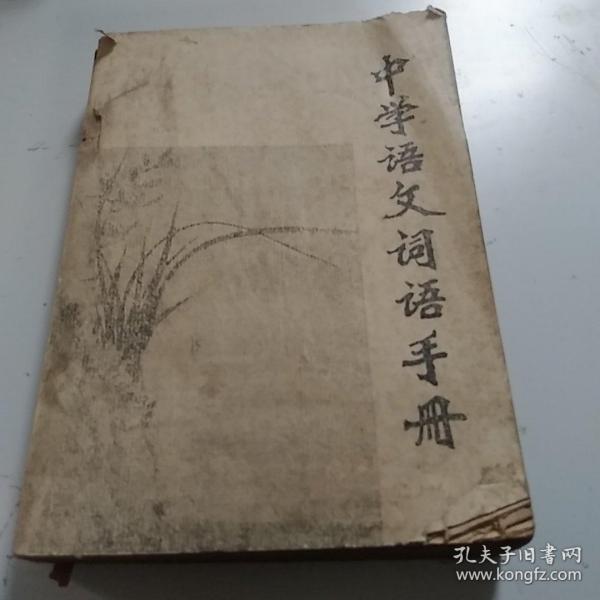 中学语文词语手册
孔夫子旧书网
www.kongfz.com